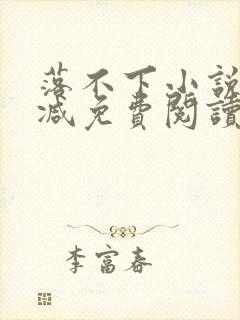 落不下小說
減免費閱讀
李富春